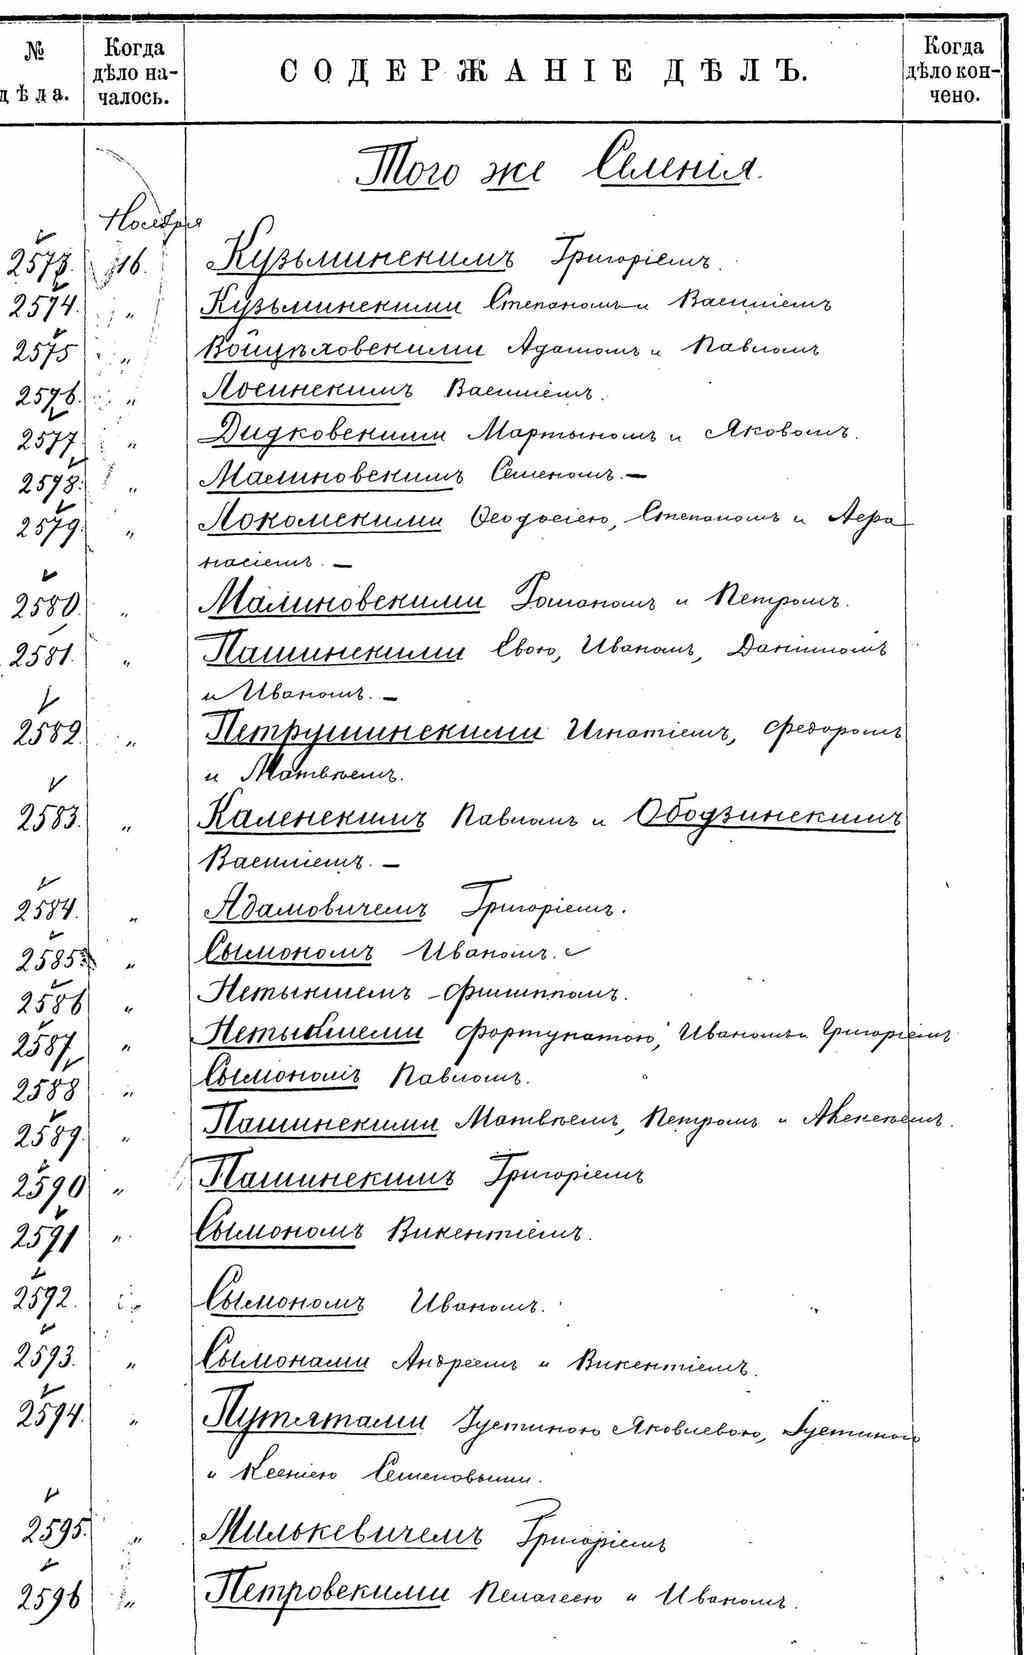 № дѣла. Когда дѣло началось. СОДЕРЖАНІЕ ДѢЛЪ. Когда дѣло кончено.
Того же Селенія.
Ноября
2573. 16. Кузьминскимъ Григоріемъ.
2574. „ Кузьминскими Степаномъ и Василіемъ
2575 „ Войцѣховскими Адамомъ и Павломъ
2576. „ Лосинскимъ Василіемъ.
2577 „ Дидковскими Мартыномъ и Яковомъ.
2578. „ Малиновскимъ Семеномъ. —
2579. „ Локомскими Ѳеодосіею, Степаномъ и Афа
насіемъ. —
2580. „ Малиновскими Романомъ и Петромъ.
2581. „ Пашинскими Евою, Иваномъ, Даніиломъ
и Иваномъ. —
2582. „ Петрушинскими Игнатіемъ, Федоромъ
и Матвѣемъ.
2583. „ Каленскимъ Павломъ и Ободзинскимъ
Василіемъ. —
2584. „ Адамовичемъ Григоріемъ.
2585. „ Сымономъ Иваномъ.
2586 „ Нетыкшемъ Филиппомъ.
2587 „ Фортунатою, Иваномъ и Григоріемъ
2588 „ Сымономъ Павломъ.
2589. „ Пашинскими Матвѣемъ, Петромъ и Алексѣемъ.
2590 „ Пашинскимъ Григоріемъ
2591 „ Сымономъ Викентіемъ.
2592. „ Сымономъ Иваномъ.
2593. „ Сымонами Андреемъ и Викентіемъ.
2594. „ Путятами Іустиною Яковлевою, Іустиною
и Ксеніею Семеновыми.
2595. „ Милькевичемъ Григоріемъ
2596 „ Петровскими Пелагеею и Иваномъ.